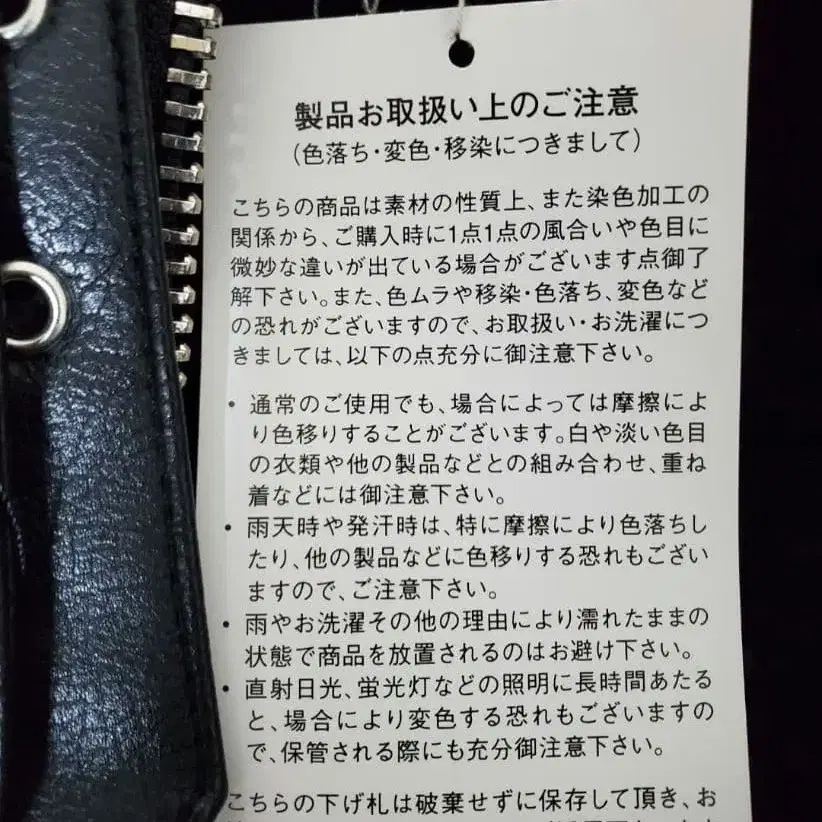 製品お取扱い上のご注意
(色落ち・変色・移染につきまして)
こちらの商品は素材の性質上、また染色加工の
関係から、ご購入時に1点1点の風合いや色目に
微妙な違いが出ている場合がございます点御了
解下さい。また、色ムラや移染・色落ち、変色など
の恐れがございますので、お取扱い・お洗濯につ
きましては、以下の点充分に御注意下さい。
・ 通常のご使用でも、場合によっては摩擦によ
り色移りすることがございます。白や淡い色目
の衣類や他の製品などとの組み合わせ、重ね
着などには御注意下さい。
・ 雨天時や発汗時は、特に摩擦により色落ちし
たり、他の製品などに色移りする恐れもござい
ますので、ご注意下さい。
・ 雨やお洗濯その他の理由により濡れたままの
状態で商品を放置されるのはお避け下さい。
・ 直射日光、蛍光灯などの照明に長時間あたる
と、場合により変色する恐れもございますの
で、保管される際にも充分御注意下さい。
こちらの下げ札は破棄せずに保存して頂き、お